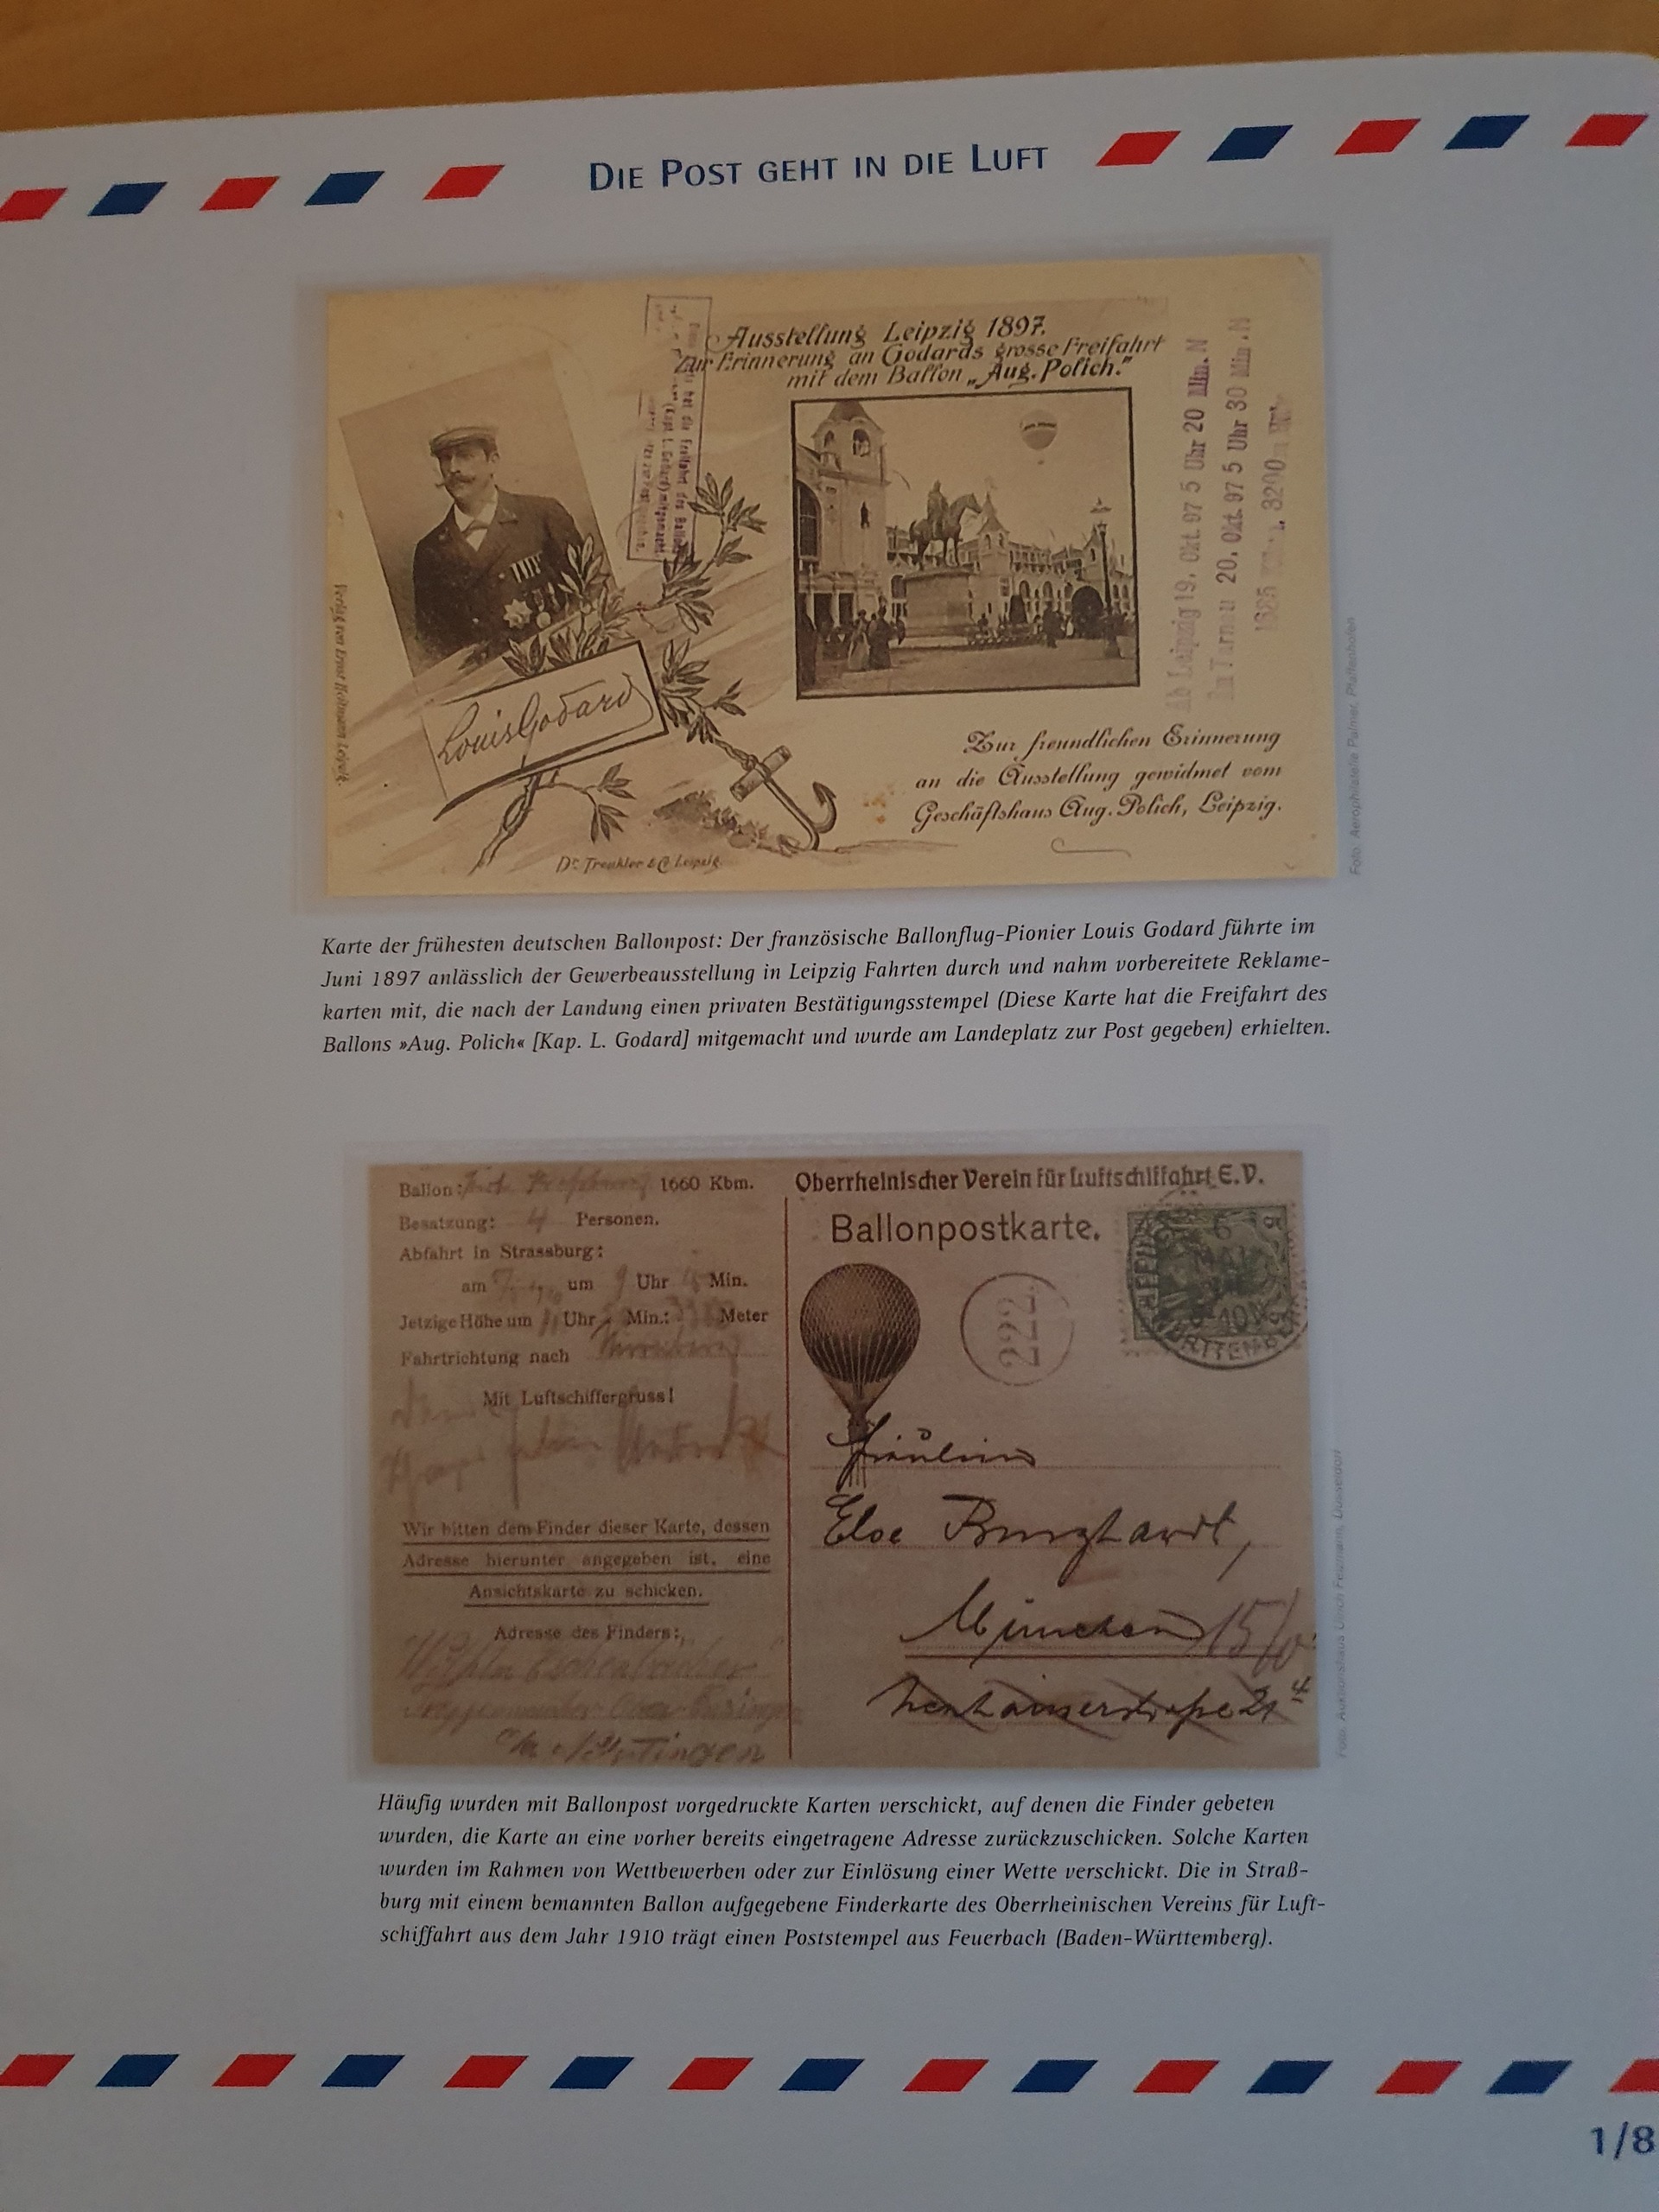 DIE POST GEHT IN DIE LUFT
Ausstellung Leipzig 1897.
Zur Erinnerung an Godards grosse Freifahrt
mit dem Ballon „Aug. Polich."
hat die Freifahrt des Ballons
(Kapt. L. Godard) mitgemacht
Ab Leipzig 19. Okt. 97 5 Uhr 20 Min. N
20. Okt. 97 5 Uhr 30 Min. N
Louis Godard
Zur freundlichen Erinnerung
an die Ausstellung gewidmet vom
Geschäftshaus Aug. Polich, Leipzig.
Dr. Trenkler & Co. Leipzig.
Foto: Aerophilatelie Palmer, Pfaffenhofen
Karte der frühesten deutschen Ballonpost: Der französische Ballonflug-Pionier Louis Godard führte im
Juni 1897 anlässlich der Gewerbeausstellung in Leipzig Fahrten durch und nahm vorbereitete Reklame-
karten mit, die nach der Landung einen privaten Bestätigungsstempel (Diese Karte hat die Freifahrt des
Ballons »Aug. Polich« [Kap. L. Godard] mitgemacht und wurde am Landeplatz zur Post gegeben) erhielten.
Ballon: 1660 Kbm.
Besatzung: 4 Personen.
Abfahrt in Strassburg:
am um 9 Uhr Min.
Jetzige Höhe um Uhr Min.: Meter
Fahrtrichtung nach
Mit Luftschiffergruss!
Wir bitten dem Finder dieser Karte, dessen
Adresse hierunter angegeben ist, eine
Ansichtskarte zu schicken.
Adresse des Finders:
Oberrheinischer Verein für Luftschiffahrt E.V.
Ballonpostkarte.
222
Fräulein
Else Burghardt,
München 15/
Foto: Auktionshaus Ulrich Felzmann, Düsseldorf
Häufig wurden mit Ballonpost vorgedruckte Karten verschickt, auf denen die Finder gebeten
wurden, die Karte an eine vorher bereits eingetragene Adresse zurückzuschicken. Solche Karten
wurden im Rahmen von Wettbewerben oder zur Einlösung einer Wette verschickt. Die in Straß-
burg mit einem bemannten Ballon aufgegebene Finderkarte des Oberrheinischen Vereins für Luft-
schiffahrt aus dem Jahr 1910 trägt einen Poststempel aus Feuerbach (Baden-Württemberg).
1/8